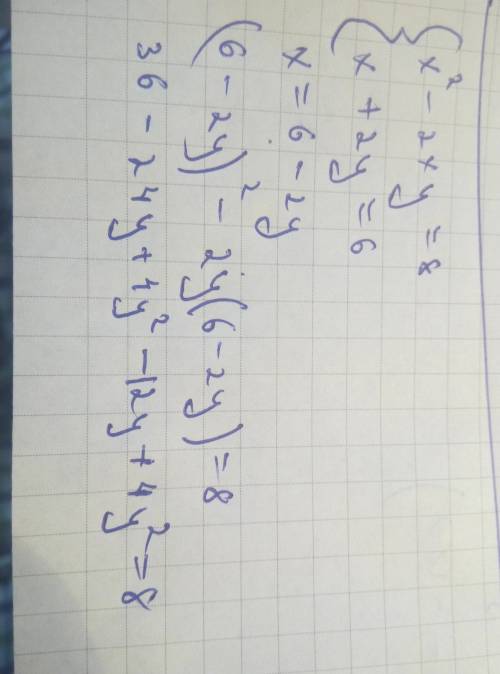 { x² - 2xy = 8
x + 2y = 6
x = 6 - 2y
(6 - 2y)² - 2y(6 - 2y) = 8
36 - 24y + 4y² - 12y + 4y² = 8